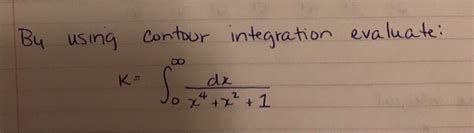 By using contour integration evaluate:
K = ∫₀^∞ dx / (x⁴ + x² + 1)